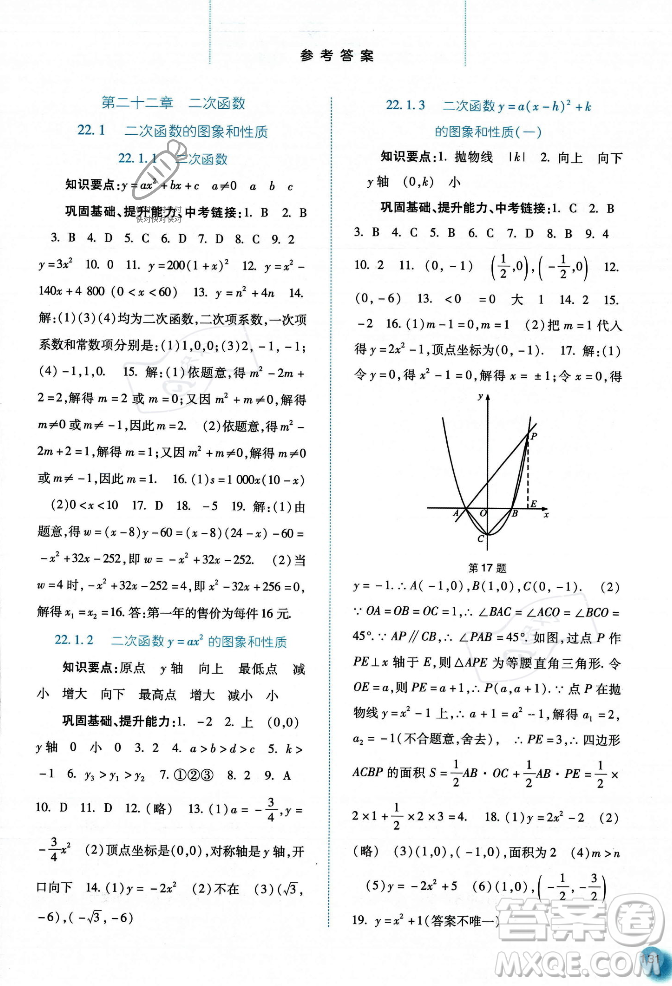 参考答案
第二十二章 二次函数
22.1 二次函数的图象和性质
22.1.1 二次函数
知识要点:y=ax²+bx+c a≠0 a b c
巩固基础、提升能力、中考链接:1. B 2. B
3. B 4. D 5. C 6. D 7. B 8. C 9. 2
y=3x² 10. 0 11. y=200(1+x)² 12. S=-2x²-
140x+4 800 (0<x<60) 13. y=n²+4n 14.
解:(1)(3)(4)均为二次函数,二次项系数,一次项
系数和常数项分别是:(1)1,0,0;(3)
(4)-1,1,0. 15. 解:(1)依题意,得 m²-m-
2=2.解得:m=2 或 m=-1;又因 m²+m≠0,解得
m≠0 或 m≠-1,因此 m=2. (2)依题意,得 m²-
m=0 且 m²+m≠0,解得 m=1;又因 m²+m≠0,解得
m≠0 或 m≠-1,因此 m=1. 16. (1)s=1 000x(10-x)
(2)0<x<10 17. D 18. -5 19. 解:(1)由
题意,得 w=(x-8)y-60=(x-8)(24-x)-60=
-x²+32x-252,即 w=-x²+32x-252. (2)当
w=4 时,-x²+32x-252=4,x²-32x+256=0,解得
x₁=x₂=16.答:第一年的售价为每件 16 元.
22.1.2 二次函数 y=ax² 的图象和性质
知识要点:原点 y 轴 向上 最低点 减
小 增大 向下 最高点 增大 减小 小
巩固基础、提升能力:1. -2 2. (0,0)
y 轴 0 小 0 3. 2 4. a>b>d>c 5. k>
-1 6. y₃>y₁>y₂ 7. ①②③ 8. B 9. A
10. D 11. D 12. (略) 13. (1)a=-3/4,y=
-3/4x² (2)顶点坐标为(0,0),对称轴是 y轴,开
口向下 14. (1)y=-2x² (2)不在 (3)(√3,
-6),(-√3,-6)
22.1.3 二次函数 y=a(x-h)²+k
的图象和性质(一)
知识要点:1. 抛物线 |k| 2. 向上 向下
y 轴 (0,k) 小
巩固基础、提升能力、中考链接:1. C 2. B
3. B 4. D 5. C 6. D 7. B 8. B 9. 4
10. 2 11. (0,-1) (1/2,0),(-1/2,0) 12.
(0,-6) 13. <0 =0 大 1 14. 2 15.
-2 16. (1)m-1=1,m=2 (2)把 m=1代入
得 y=x²,顶点坐标(0,0). 17. 解:(1)令
得 0=x²-1,解得 x=±1;令 x=0,得
y
P
A O B E x
C
第 17 题
y=-1.∴A(-1,0),B(1,0),C(0,-1) (2)
∵OA=OB=OC=1,∴∠BAC=∠ABC=
45°.∵AP∥CB,∴∠PAB=∠ABC=45°.过 P 作
PE⊥x 轴于 E,则△APE 为等腰直角三角形.令
OE=a,则 PE=a+1,∴P(a,a+1).∵点 P 在抛
物线 y=x²-1 上,∴a+1=a²-1.解得 a₁=2,
a₂=-1(不合题意,舍去).∴PE=3,∴四边形
ACBP 的面积 S=1/2AB·OC+1/2AB·PE=1/2×
2×1+1/2×2×3=4. 18. (1)y=2x²-2 (2)
(略) (3)(0,-1/2),面积为2 (4)m>n
(5)y=-2x²+2 (6)(1/2,-3/2),(-1/2,-3/2)
19. y=x²+1(答案不唯一)